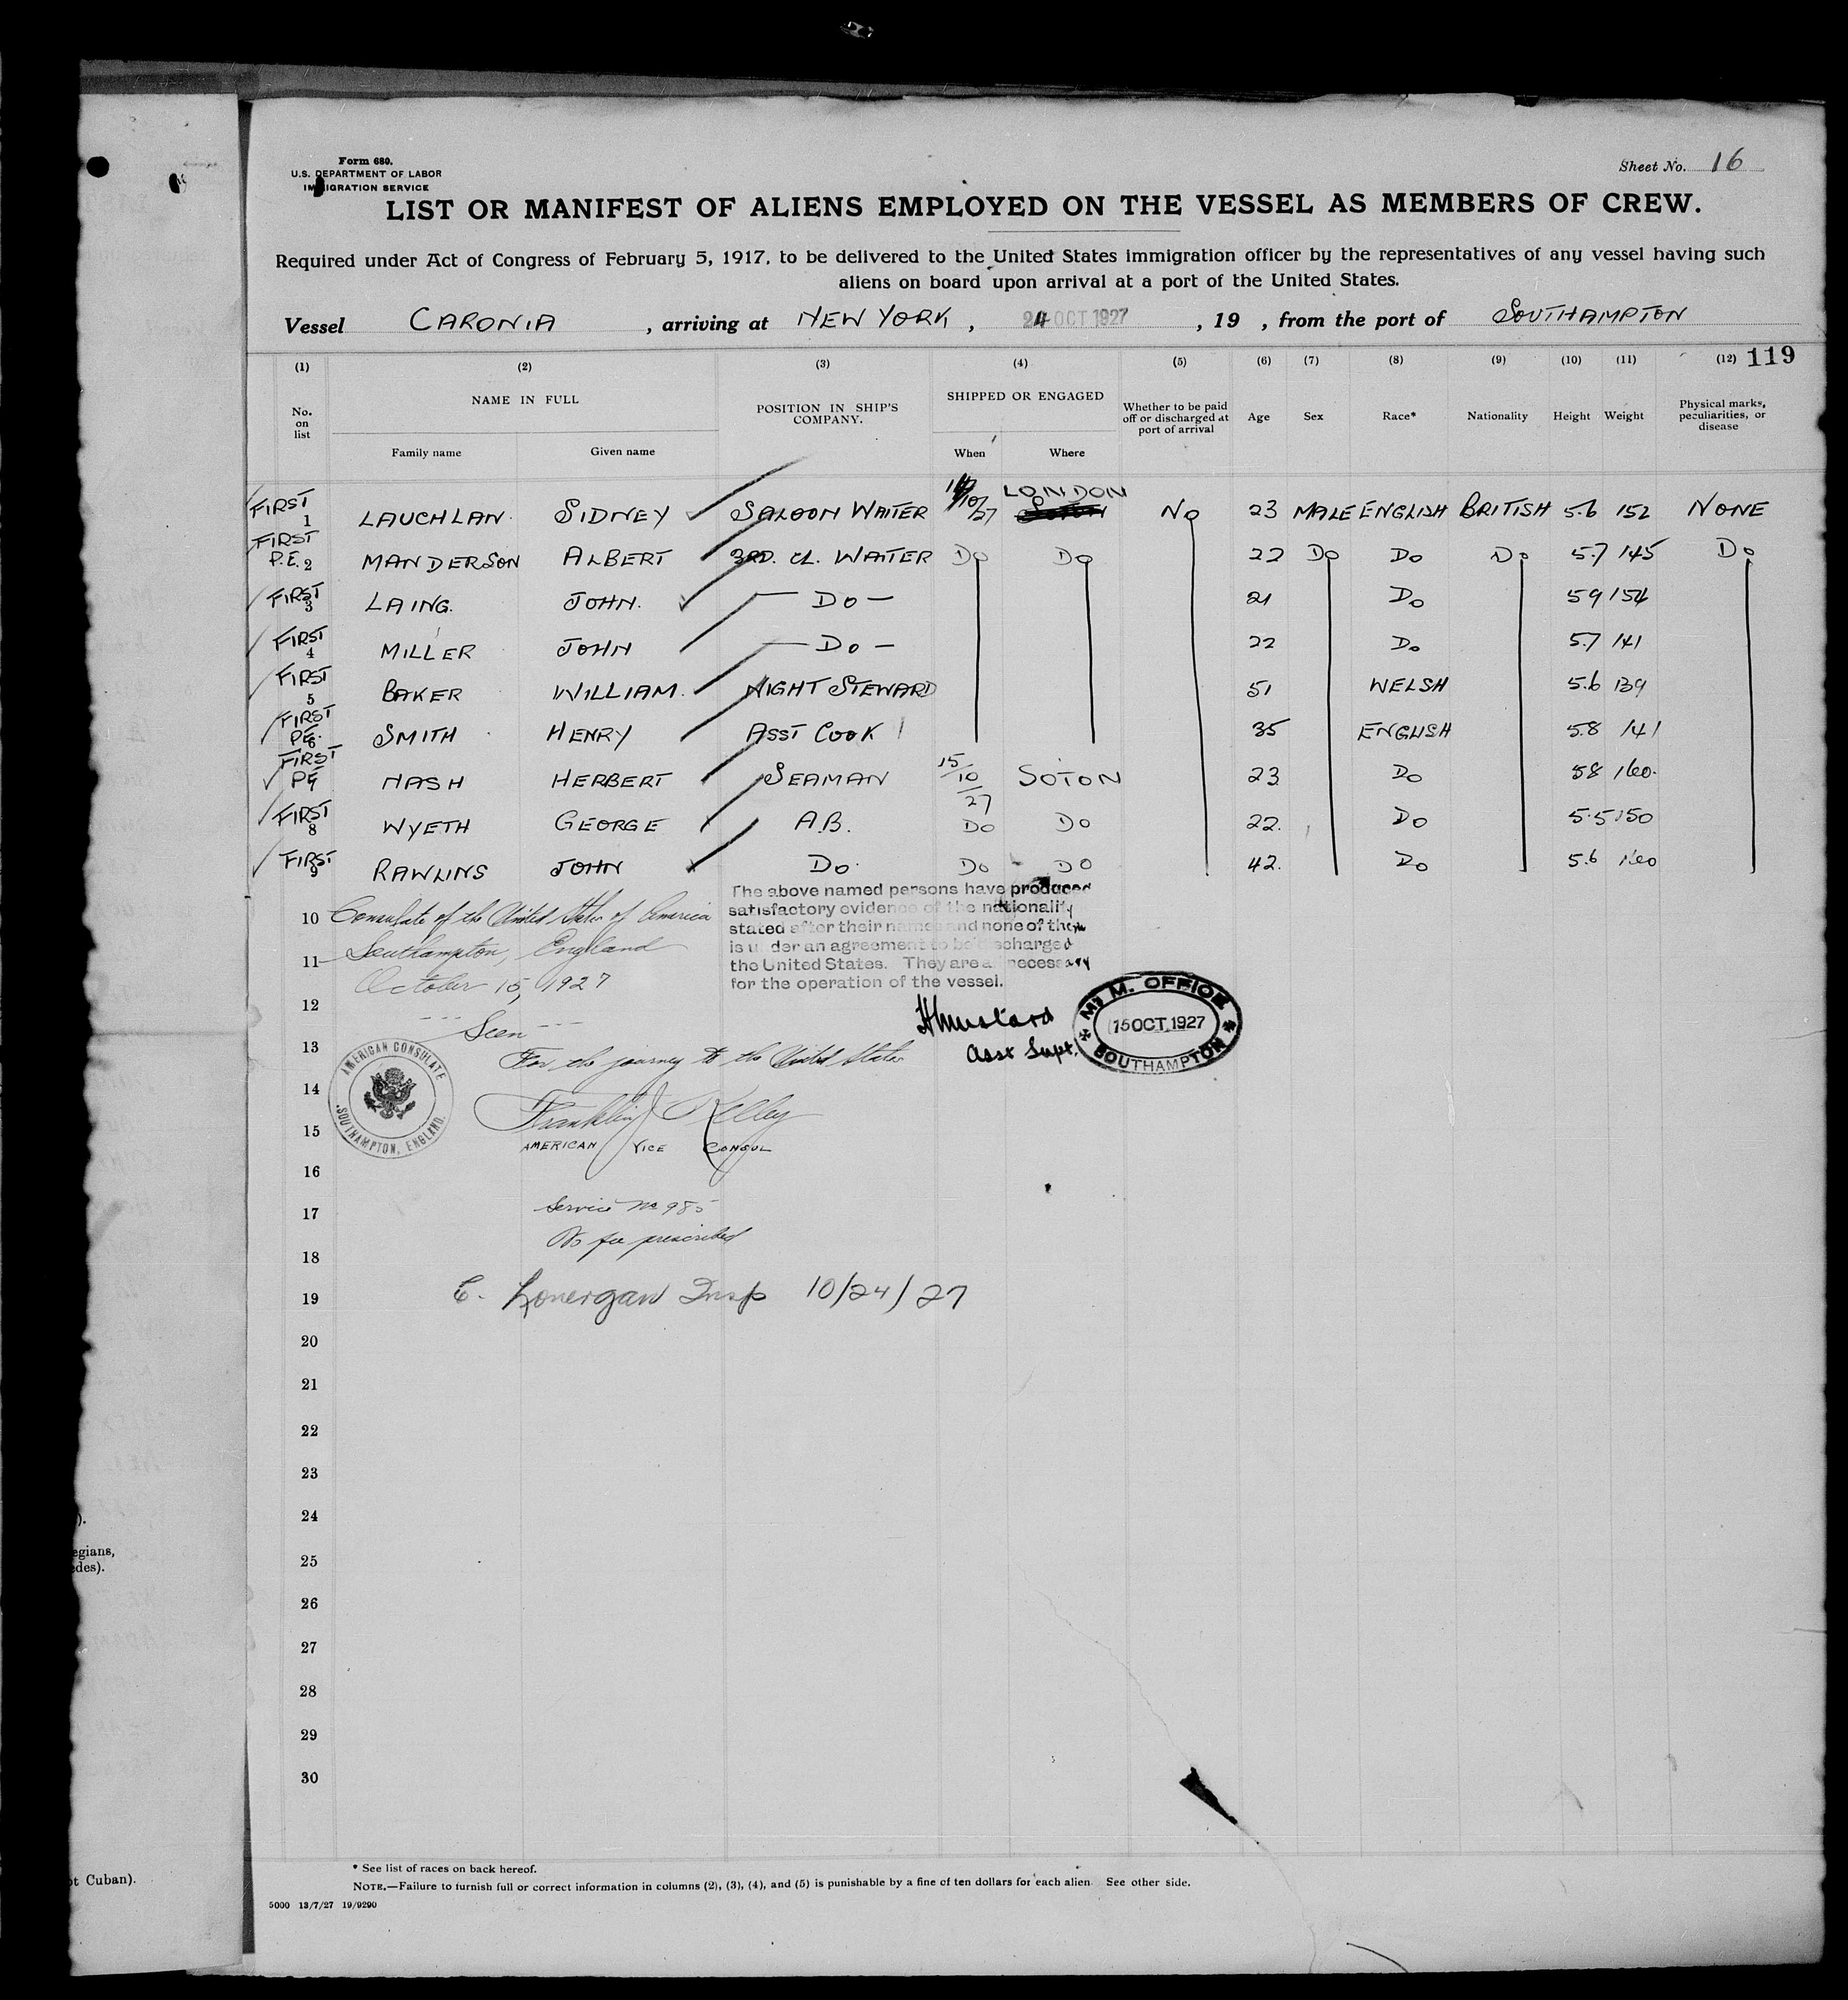 Form 680.
U.S. DEPARTMENT OF LABOR
IMMIGRATION SERVICE
Sheet No. 16
LIST OR MANIFEST OF ALIENS EMPLOYED ON THE VESSEL AS MEMBERS OF CREW.
Required under Act of Congress of February 5, 1917, to be delivered to the United States immigration officer by the representatives of any vessel having such
aliens on board upon arrival at a port of the United States.
Vessel CARONIA, arriving at NEW YORK, 24 OCT 1927, 19 , from the port of SOUTHAMPTON
(1) (2) (3) (4) (5) (6) (7) (8) (9) (10) (11) (12) 119
No. on list NAME IN FULL POSITION IN SHIP'S COMPANY. SHIPPED OR ENGAGED Whether to be paid off or discharged at port of arrival Age Sex Race* Nationality Height Weight Physical marks, peculiarities, or disease
Family name Given name When Where
FIRST 1 LAUCHLAN SIDNEY SALOON WAITER 10/27 LONDON SOTON No 23 MALE ENGLISH BRITISH 5.6 152 NONE
FIRST P.E. 2 MANDERSON ALBERT 3RD. CL. WAITER Do Do 22 Do Do Do 5.7 145 Do
FIRST 3 LAING. JOHN. — Do — 21 Do 59 154
FIRST 4 MILLER JOHN — Do — 22 Do 5.7 141
FIRST 5 BAKER WILLIAM. NIGHT STEWARD 51 WELSH 5.6 139
FIRST PE. 6 SMITH HENRY ASST COOK 35 ENGLISH 58 141
FIRST PE 7 NASH HERBERT SEAMAN 15/10/27 SOTON 23 Do 58 160.
FIRST 8 WYETH GEORGE A.B. Do Do 22. Do 5.5 150
FIRST 9 RAWLINS JOHN Do. Do Do 42. Do 5.6 160
The above named persons have produced
satisfactory evidence of the nationality
stated after their names and none of them
is under an agreement to be discharged
the United States. They are a necessary
for the operation of the vessel.
10 Consulate of the United States of America
11 Southampton, England
October 15, 1927
12
Seen
H Mustard
Asst Supt.
Mt M. OFFICE
15 OCT. 1927
SOUTHAMPTON
13 For the journey to the United States
AMERICAN CONSULATE
SOUTHAMPTON, ENGLAND.
14
Franklin J Kelley
15 AMERICAN VICE CONSUL
16
17 Service No 985
No fee prescribed
18
19 C. Lonergan Insp 10/24/27
20
21
22
23
24
25
26
27
28
29
30
).
egians,
edes).
ot Cuban).
* See list of races on back hereof.
NOTE.—Failure to furnish full or correct information in columns (2), (3), (4), and (5) is punishable by a fine of ten dollars for each alien. See other side.
5000 13/7/27 19/9290